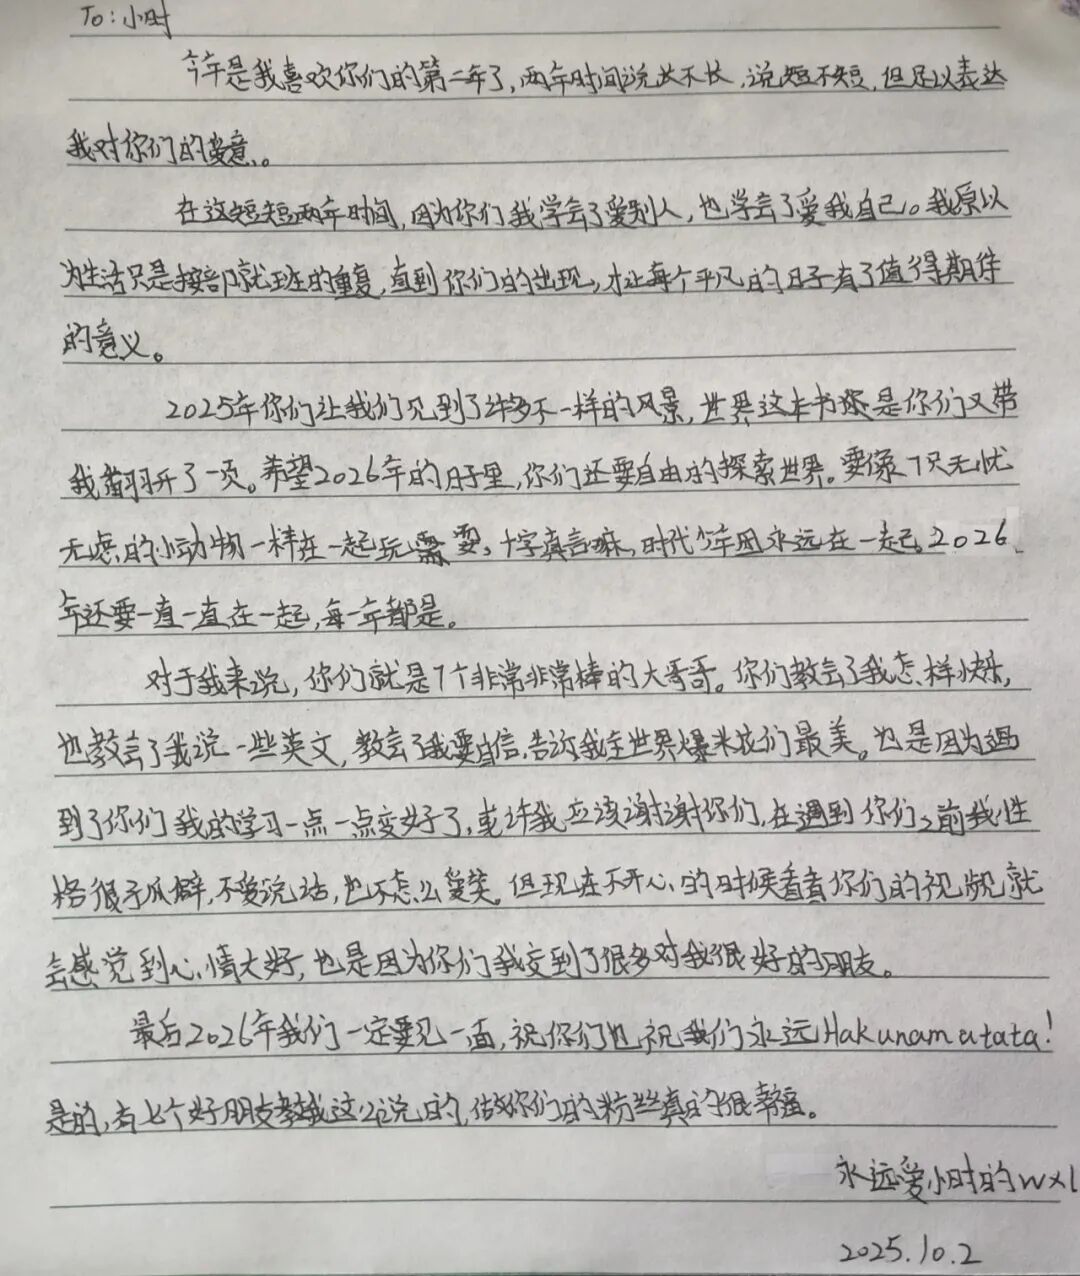 To：小时
今年是我喜欢你们的第二年了，两年时间说长不长，说短不短，但足以表达
我对你们的爱意。
在这短短两年时间，因为你们我学会了爱别人，也学会了爱我自己。我原以
为生活只是按部就班的重复，直到你们的出现，才让每个平凡的日子有了值得期待
的意义。
2025年你们让我们见到了许多不一样的风景，世界这本书还是你们又带
我翻开了一页。希望2026年的日子里，你们还要自由的探索世界。要像7只无忧
无虑的小动物一样在一起玩耍，十字真言嘛，时代少年团永远在一起。2026
年还要一直一直在一起，每一年都是。
对于我来说，你们就是7个非常非常棒的大哥哥。你们教会了我怎样快乐，
也教会了我说一些英文，教会了我要自信，告诉我全世界爆米花们最美。也是因为遇
到了你们我的学习一点一点变好了，或许我应该谢谢你们，在遇到你们之前我性
格很孤僻，不爱说话，也不怎么爱笑。但现在不开心的时候看看你们的视频就
会感觉到心情大好，也是因为你们我交到了很多对我很好的朋友。
最后2026年我们一定要见一面，祝你们也祝我们永远Hakunamatata！
是的，有七个好朋友教我这么说的，做你们的粉丝真的很幸福。
永远爱小时的wxl
2025.10.2